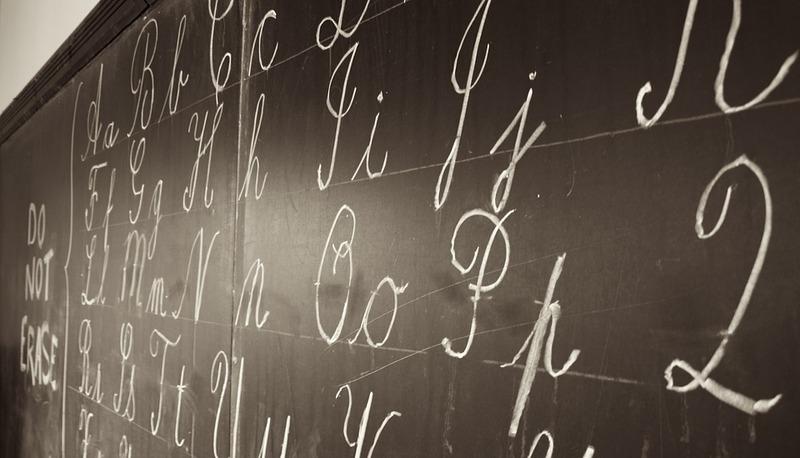 DO
NOT
ERASE
Aa Bb Cc D
Ff Gg Hh Ii Jj K
Ll Mm Nn Oo Pp Q
Rr Ss Tt Uu V